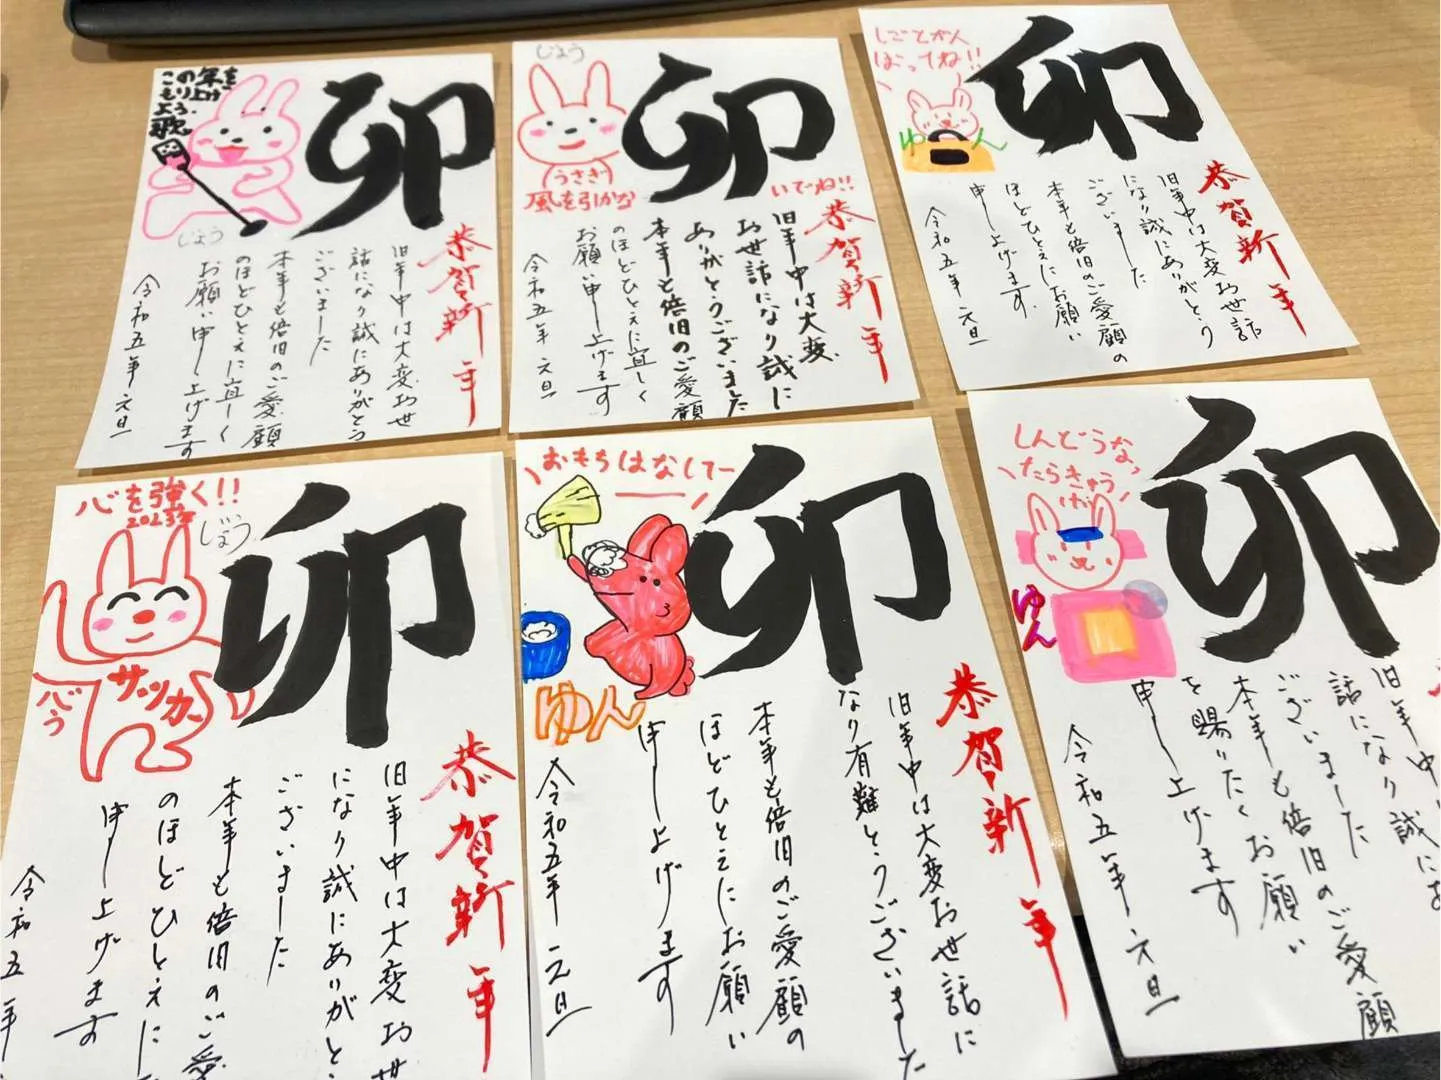 この年を
もり上げ
よう
歌
じょう
卯
恭賀新年
旧年中は大変お世
話になり誠にありがとう
ございました
本年も倍旧のご愛顧
のほどひとえに宜しく
お願い申し上げます
令和五年元旦
じょう
(うさぎ)
風を引かな
いでね!!
卯
恭賀新年
旧年中は大変
お世話になり誠に
ありがとうございました
本年も倍旧のご愛顧
のほどひとえに宜しく
お願い申し上げます
令和五年元旦
しごとがん
ばってね!!
ゆん
卯
恭賀新年
旧年中は大変お世話
になり誠にありがとう
ございました
本年も倍旧のご愛顧の
ほどひとえにお願い
申し上げます
令和五年元旦
心を強く!!
2023年
じょう
サッカー
卯
恭賀新年
旧年中は大変お世話
になり誠にありがと
ございました
本年も倍旧のご愛
のほどひとえに
申し上げます
令和五年
おもちはなしてー
ゆん
卯
恭賀新年
旧年中は大変お世話に
なり有難とうございました
本年も倍旧のご愛顧の
ほどひとえにお願い
申し上げます
令和五年元旦
しんどうなっ
たらきゅう
ゆん
卯
旧年中
話になり誠にあ
ございました
本年も倍旧のご愛顧
を賜りたくお願い
申し上げます
令和五年元旦